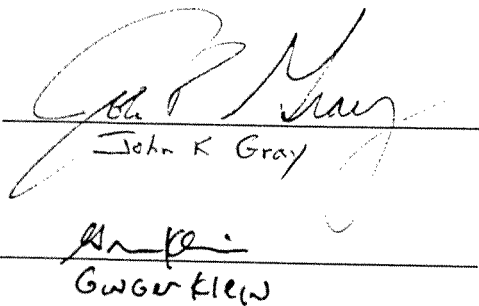 John K Gray
John K Gray
Ginger Klein